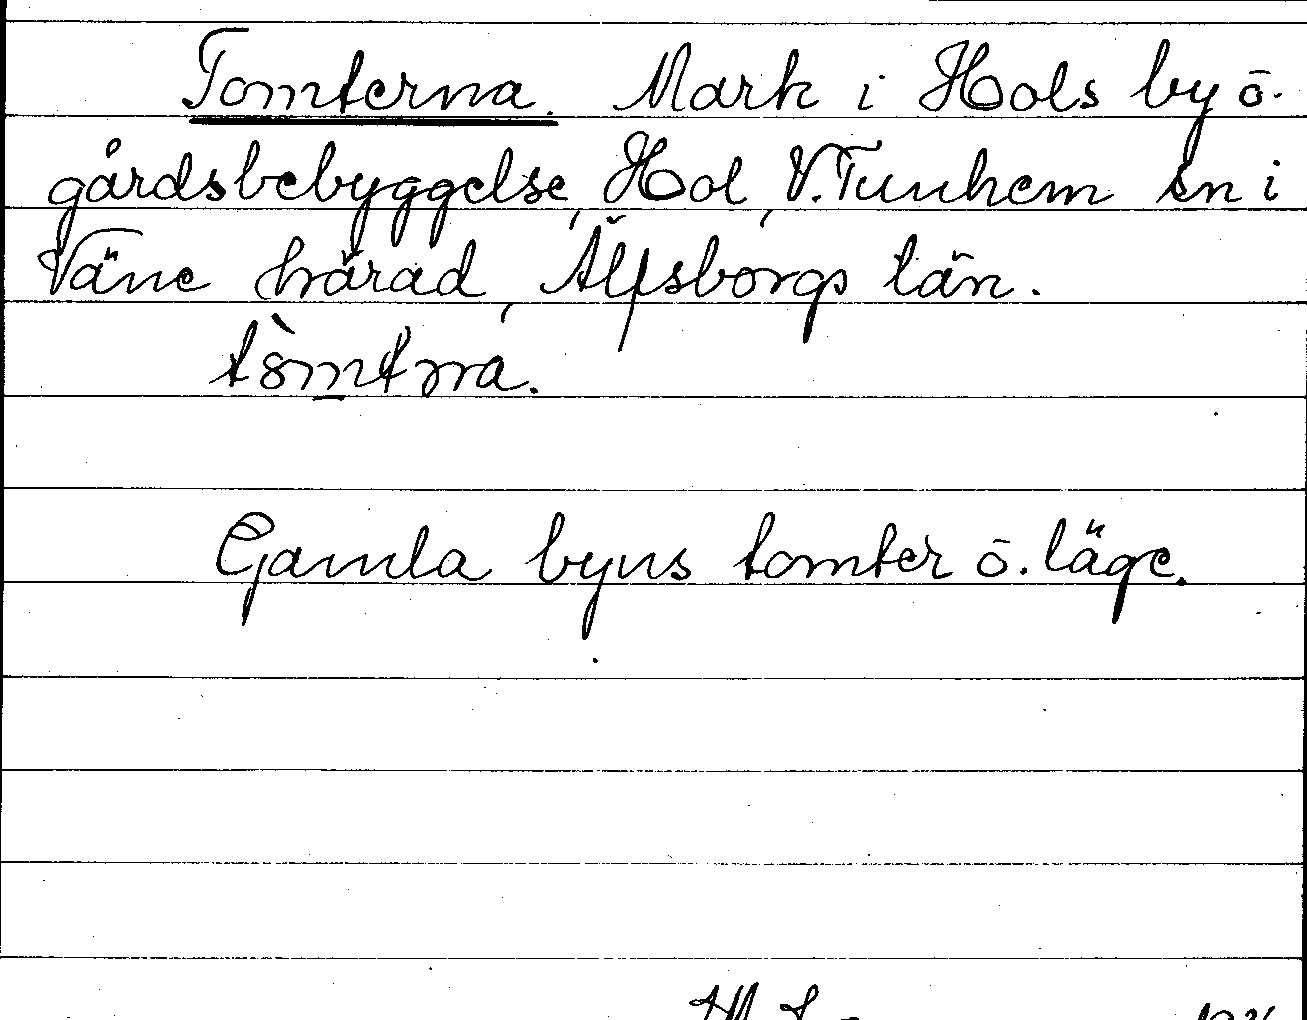 Tomterna. Mark i Hols by ō.
gårdsbebyggelse, Hol, V.Tunhem sn i
Väne härad, Älfsborgs län.
Gamla byns tomter ō. läge.